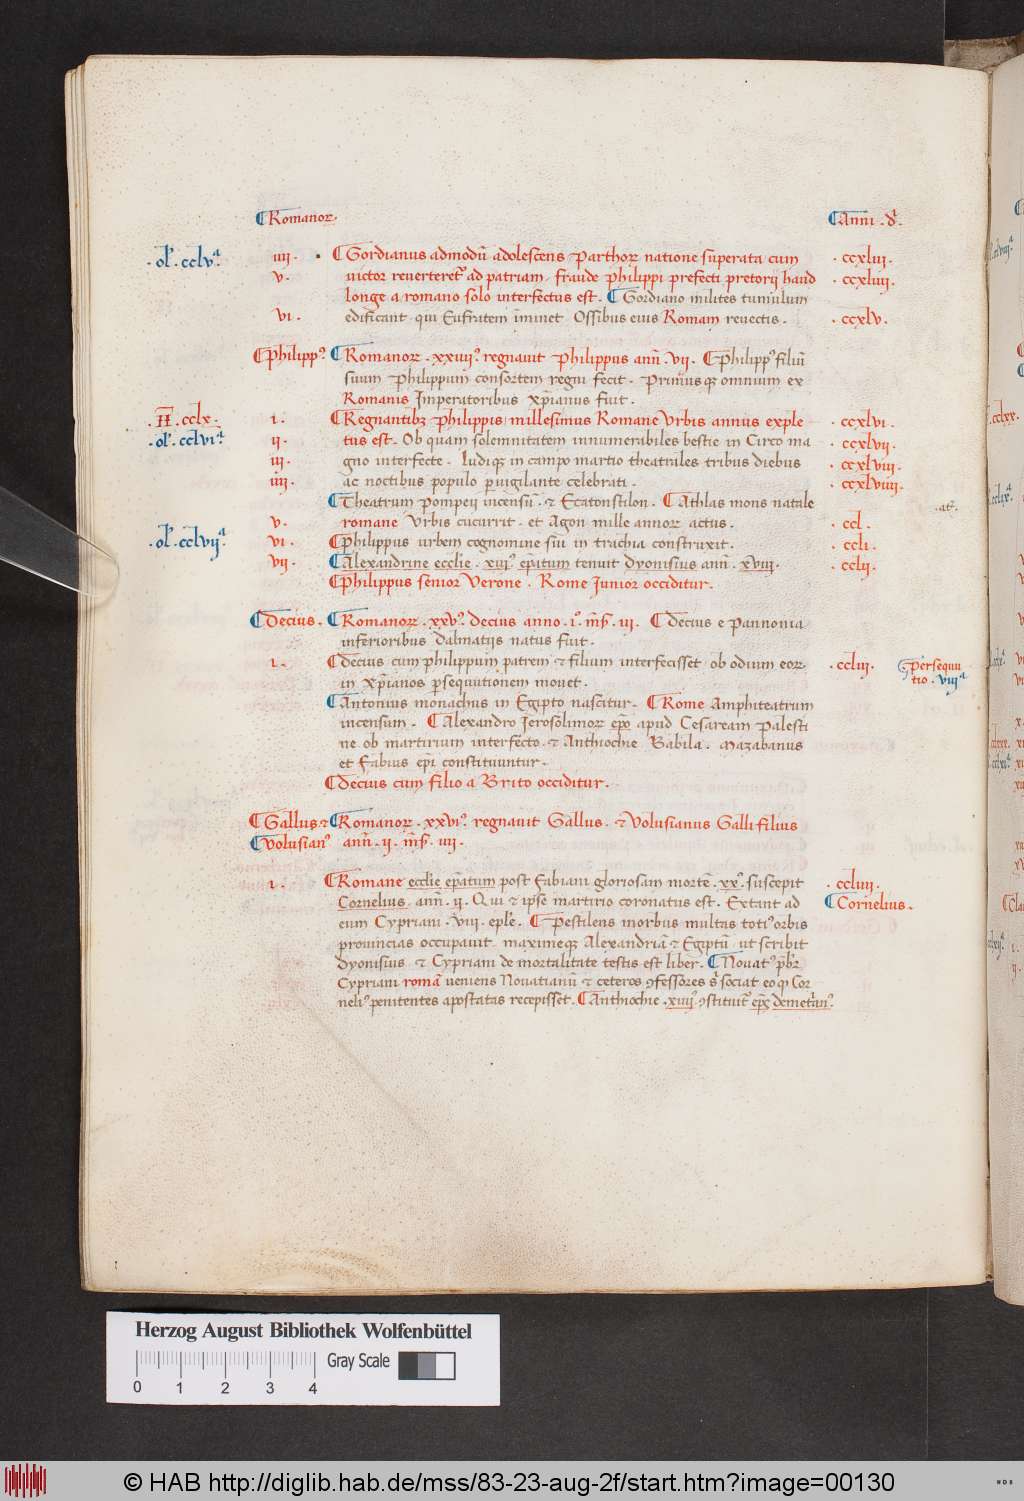 ¶Romanoꝝ. ¶Anni .d̄.
.ol̄. cclvᵃ. iiii . ¶Gordianus admodū adolescens Parthoꝝ natione superata cum . ccxliii .
v . uictor reuerteret᷑ ad patriam . fraude Philippi prefecti pretorii haud . ccxliiii .
longe a romano solo interfectus est . ¶Gordiano milites tumulum
vi . edificant qui Eufratem īminet Ossibus eius Romam reuectis . . ccxlv .
¶Philippꝰ ¶Romanoꝝ . xxiiiiꝰ. regnauit Philippus anñ . vii . ¶Philippꝰ filiū
suum Philippum consortem regni fecit . Primusqꝫ omnium ex
Romanis Imperatoribus xp̄ianus fuit .
. H̄ . cclx . i . ¶Regnantibꝫ Philippis millesimus Romane Vrbis annus exple . ccxlvi .
.ol̄. cclviᵃ. ii . tus est . Ob quam solemnitatem innumerabiles bestie in Circo ma . ccxlvii .
iii . gno interfecte . ludiqꝫ in campo martio theatrales tribus diebus . ccxlviii .
iiii . ac noctibus populo ꝑuigilante celebrati . . ccxlviiii .
¶Theatrum Pompeii incensū . & Ecatonstilon . ¶Athlas mons natale
v . romane Vrbis cucurrit . et Agon mille annoꝝ actus . . ccl .
.ol̄. cclviiᵃ. vi . ¶Philippus urbem cognomine sui in trachia construxit . . ccli .
vii . ¶Alexandrine ecclie . xiiiꝰ. ep̄atum tenuit Dyonisius anñ . xviii . . cclii .
¶Philippus senior Verone . Rome Iunior occiditur .
¶Decius . ¶Romanoꝝ . xxvꝰ. Decius anno . iꝰ. m̄s̄ . iii . ¶Decius e Pannonia
inferioribus Dalmatiis natus fuit .
i . ¶Decius cum Philippum patrem & filium interfecisset ob odium eoꝝ . ccliii . ¶Persequu
in xp̄ianos ꝑsequutionem mouet . tio . viiᵃ
¶Antonius monachus in Egipto nascitur . ¶Rome Amphiteatrum
incensum . ¶Alexandro Ierosolimoꝝ ep̄o apud Cesaream Palesti
ne ob martirium interfecto . & Anthiochie Babila . Mazabanus
et Fabius ep̄i constituuntur .
¶Decius cum filio a Brito occiditur .
¶Gallus & ¶Romanoꝝ . xxviꝰ. regnauit Gallus . & Volusianus Galli filius
¶Volusianꝰ anñ . ii . m̄s̄ . iiii .
i . ¶Romane ecclie ep̄atum post Fabiani gloriosam mortē . xxꝰ. suscepit . ccliiii .
Cornelius . anñ . ii . Qui & ipse martirio coronatus est . Extant ad ¶Cornelius .
eum Cypriani . viii . epl̄e . ¶Pestilens morbus multas totiꝰ orbis
prouincias occupauit maximeqꝫ Alexandriā & Egiptū ut scribit
Dyonisius & Cypriani de mortalitate testis est liber . ¶Nouatꝰ p̄br̄
Cypriani romā ueniens Nouatianū & ceteros ꝯfessores s̄ sociat eo qꝫ Cor
neliꝰ penitentes apostatas recepisset . ¶Anthiochie . xiiiiꝰ ꝯstituit᷑ ep̄s Demetriānꝰ.
Herzog August Bibliothek Wolfenbüttel
Gray Scale
0 1 2 3 4
© HAB http://diglib.hab.de/mss/83-23-aug-2f/start.htm?image=00130